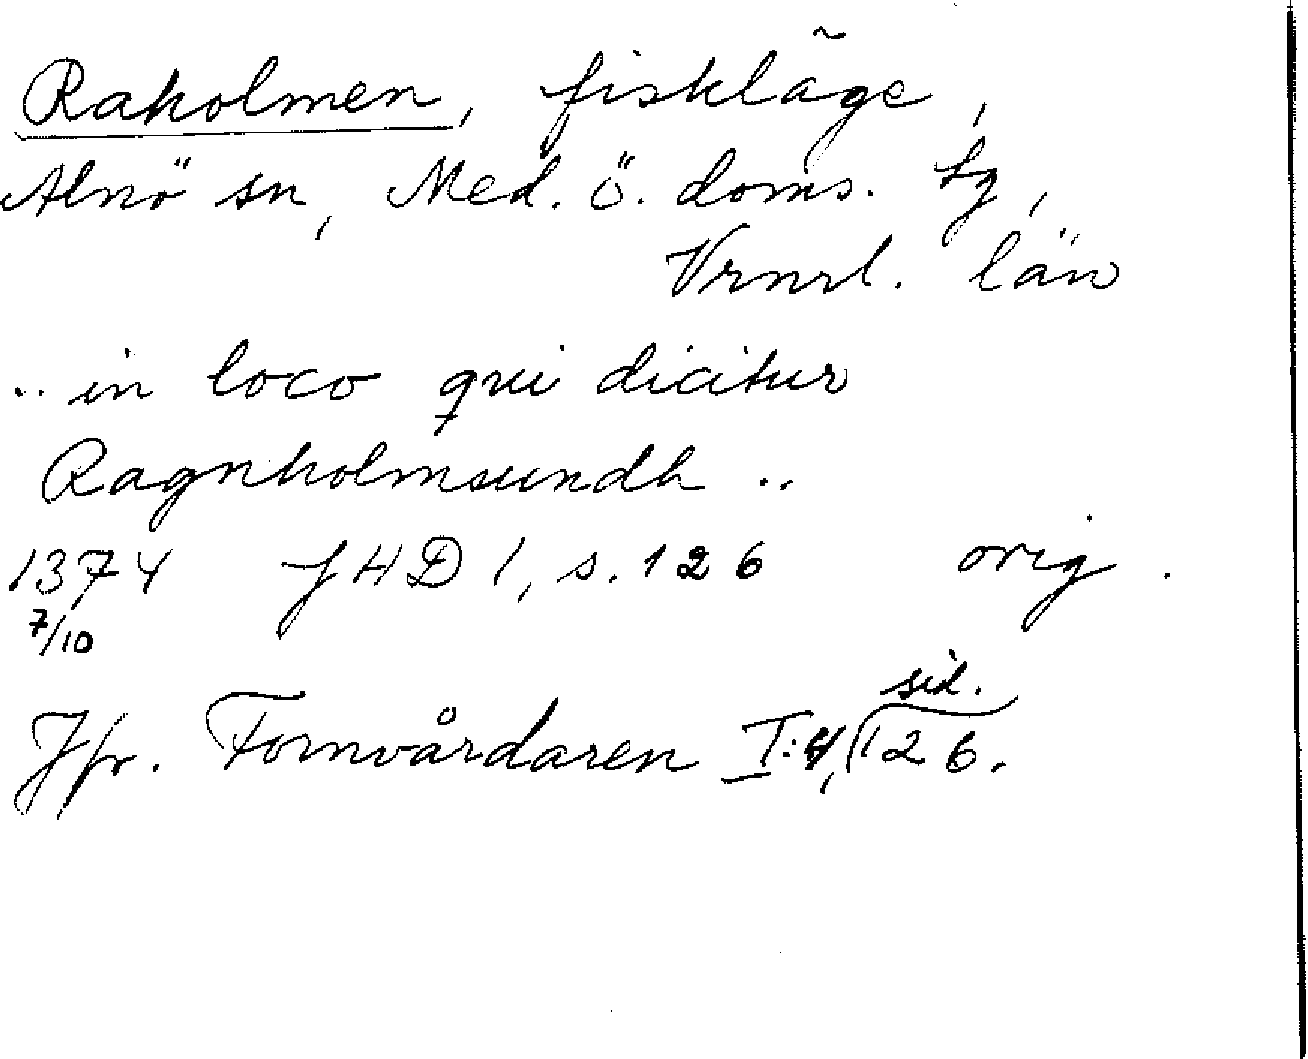 Raholmen, fiskläge,
Alnö sn, Med. ö. doms. tg,
Vrnrl. län
.. in loco qui dicitur
Ragnholmsundh ..
1374 JHD 1, s. 126 orig.
7/10
Jfr. Fornvårdaren I:4, sid. 126.